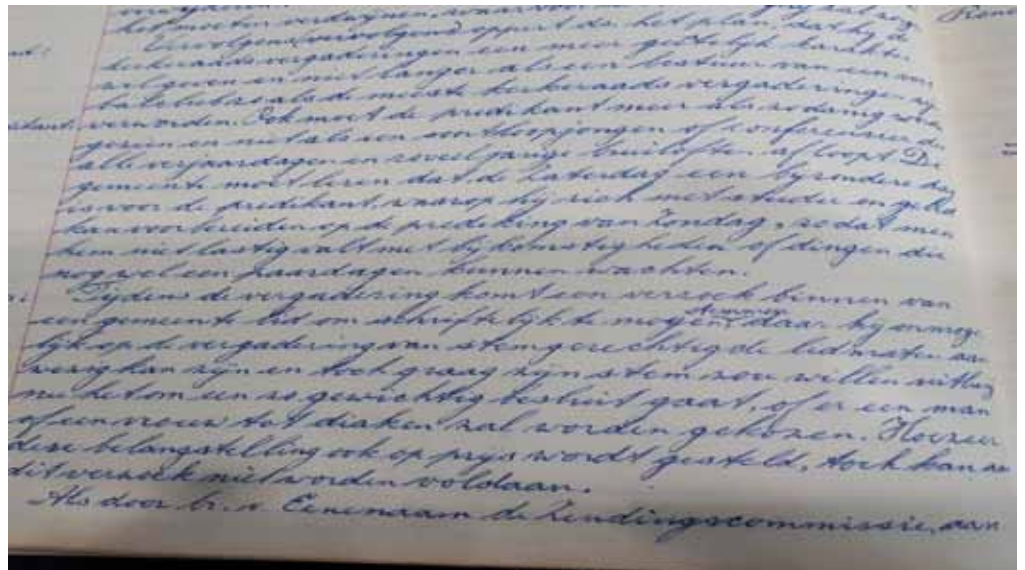 het moeten verdwijnen, waarvoor
Vervolgens vervolgend oppert ds. het plan, dat hij de
kerkeraadsvergaderingen een meer geestelijk karakter
wil geven en niet langer als een bestuur van een
als de meeste kerkeraadsvergaderingen zijn
verworden. Ook moet de predikant meer als zodanig worden
gezien en niet als een soortloopjongen of conferencier die
alle verjaardagen en zoveeljarige bruiloften afloopt. De
gemeente moet leren dat de Zaterdag een bijzondere dag
is voor de predikant, waarop hij zich met studie en gebed
kan voorbereiden op de prediking van Zondag, zodat men
hem niet lastig valt met bijkomstigheden of dingen die
nog wel een paar dagen kunnen wachten.
Tijdens de vergadering komt een verzoek binnen van
een gemeentelid om schriftelijk te mogen stemmen daar hij onmoge-
lijk op de vergadering van stemgerechtigde lidmaten aan
wezig kan zijn en toch graag zijn stem zou willen uitbreng
nu het om een zo gewichtig besluit gaat, of er een man
of een vrouw tot diaken zal worden gekozen. Hoezeer
deze belangstelling ook op prijs wordt gesteld, toch kan aan
dit verzoek niet worden voldaan.
Als door br. v. Eenenaam de Zendingscommissie, aan